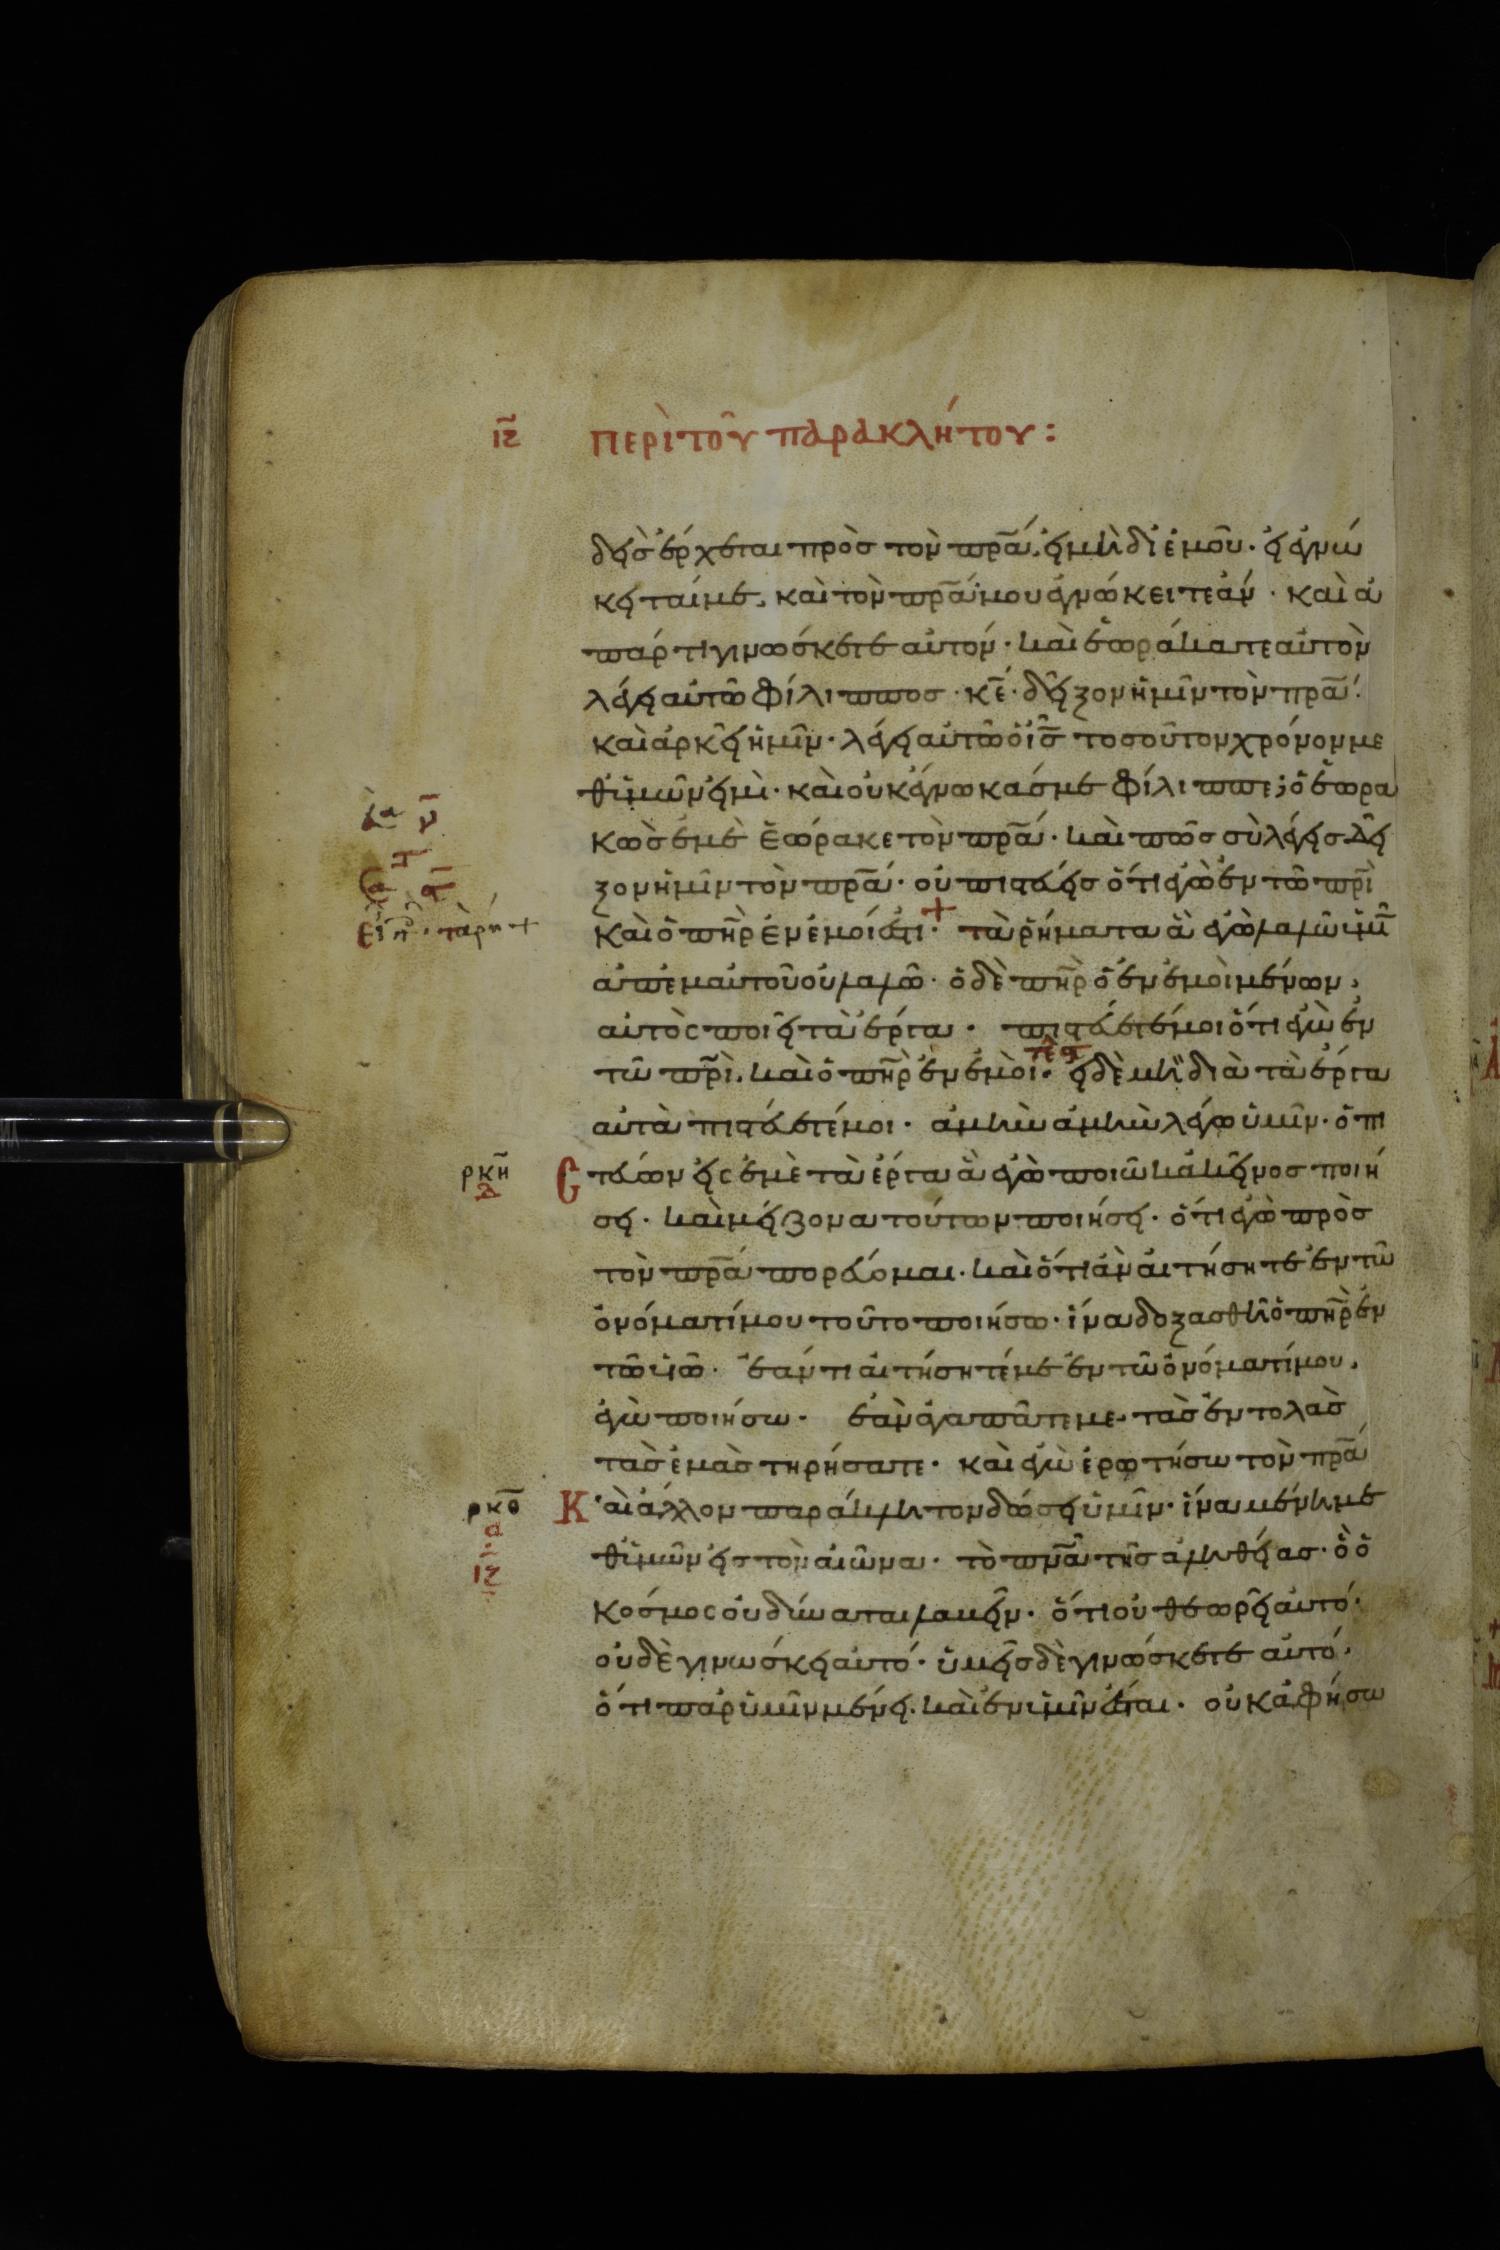 ιζ̅ περὶ τοῦ παρακλήτου:
δεὶσ ἔρχεται πρὸσ τὸν πρ̅α. εἰ μὴ δι ἐμοῦ. εἰ ἐγνώ
κειταί με. καὶ τὸν πρ̅α μου ἐγνώκειτε ἄν. καὶ ἀ
παρτι γινώσκετε αὐτον. καὶ ἑωράκατε αὐτὸν
λέγει αὐτῶ φίλιπποσ. κ̅ε. δεῖξον ἡμῖν τὸν πρ̅α.
καὶ ἀρκεῖ ἡμῖν. λέγει αὐτῶ ὁ ι̅σ τοσοῦτον χρόνον με
θ ὑμῶν εἰμὶ. καὶ οὐκ ἔγνωκάσ με φίλιππε; ὁ ἑωρα
κὼσ ἐμὲ ἑώρακε τὸν πρ̅α. καὶ πῶσ σὺ λέγεισ δεῖ
ξον ἡμῖν τὸν πρ̅α. οὐ πιστεύεισ ὅτι ἐγὼ ἐν τῶ πρ̅ι
καὶ ὁ πη̅ρ ἐν ἐμοί ἐστι. + τὰ ῥήματα ἃ ἐγὼ λαλῶ ὑμῖ̅
ἀπ ἐμαυτοῦ οὐ λαλῶ. ὁ δὲ πη̅ρ ὁ ἐν ἐμοὶ μένων,
αὐτὸς ποιεῖ τὰ ἔργα. πιστεύετέ μοι ὅτι ἐγὼ ἐν
τῶ πρ̅ι. καὶ ὁ πη̅ρ ἐν ἐμοὶ. εἰ δὲ μὴ διὰ τὰ ἔργα
αὐτὰ πιστεύετέ μοι. ἀμὴν ἀμὴν λέγω ὑμῖν. ὁ πι
ρκη̅ δ
στεύων εἰς ἐμὲ τὰ ἔργα ἃ ἐγὼ ποιῶ κἀκεῖνοσ ποιή
σει. καὶ μείζονα τούτων ποιήσει. ὅτι ἐγὼ πρὸσ
τὸν πρ̅α πορεύομαι. καὶ ὅτι ἂν αἰτήσητε ἐν τῶ
ὀνόματί μου τοῦτο ποιήσω. ἵνα δοξασθῆ ὁ πη̅ρ ἐν
τῶ υἱῶ. ἐάν τι αἰτήσητέ με ἐν τῶ ὀνόματί μου,
ἐγὼ ποιήσω. ἐὰν ἀγαπᾶτε με. τὰσ ἐντολὰσ
τὰσ ἐμὰσ τηρήσατε. καὶ ἐγὼ ἐρωτήσω τὸν πρ̅α
ρκθ̅ α ιζ̅
Καὶ ἄλλον παράκλητον δώσει ὑμῖν. ἵνα μένη με
θ ὑμῶν εἰσ τὸν αἰῶνα. τὸ πν̅α τῆσ ἀληθείασ. ὃ ὁ
κόσμος οὐ δύναται λαβεῖν. ὅτι οὐ θεωρεῖ αὐτό.
οὐδὲ γινώσκει αὐτό. ὑμεῖσ δὲ γινώσκετε αὐτό.
ὅτι παρ ὑμῖν μένει. καὶ ἐν ὑμῖν ἔσται. οὐκ ἀφήσω